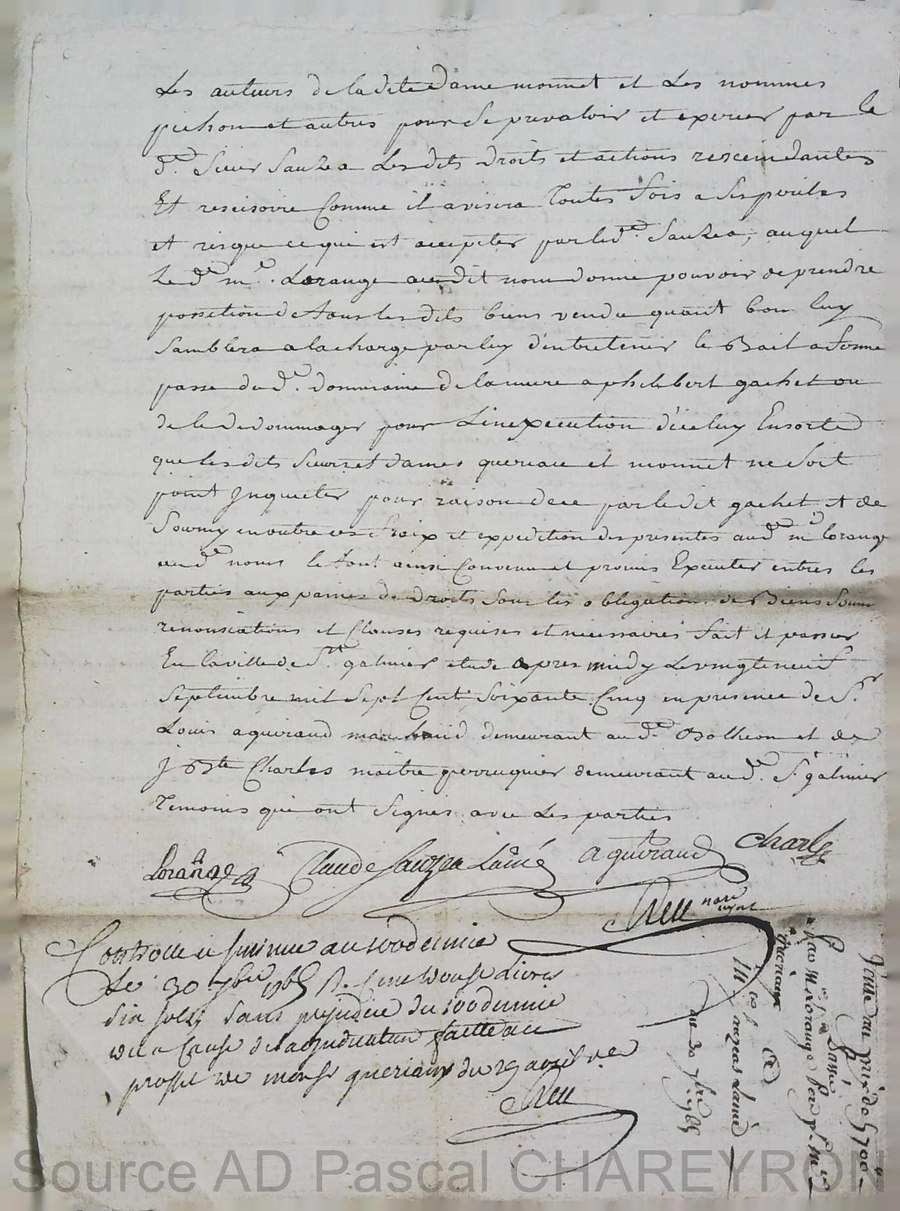 Les auteurs de la dite Dame monnet et Les nommes
pichon et autres pour se prevaloir et exercer par le
d.t Sieur Sauzea Les dits droits et actions rescindantes
Et rescisoire Comme il avisera Toutes fois a ses perils
et risque ce qui est accepter par led.t Sauzea, auquel
Le d.t m.e Lorange audit nom donne pouvoir de prendre
possition de tous les dits biens vendu quant bon luy
Samblera a la charge par luy d'entretenir le Bail a ferme
passe du d.t Dommaine de la mure a philibert gachet ou
de le dedommager pour L'inexecution d'iceluy Ensorte
que les dits Sieurs et dames queriau et monnet ne Soit
point Inquieter pour raison de ce par le dit gachet et de
fournir en outre ces fraix et expedition des presentes aud.t m.e lorange
aud.t noms le tout ainsi Convenu et promis Executer entres les
parties aux paines de Droits Sous les obligations de Biens Soum
renonsiations et Clauses requises et necessaires fait et passer
En la ville de S.t galmier etude apres midy Le vingt neuf
Septembre mil Sept Cent Soixante Cinq en presence de S.r
Louis aguiraud marchand demeurant au d.t Botheon et de
J Bte Charles maitre perruquier demeurant au d.t S.t galmier
Temoins qui ont Signes avec Les parties
Lorange Claude Sauzea Lainé aguiraud Charles
nore royal
Controlle
Le 30 7bre 1765 R.
six sols sans prejudice du
a Cause de l'adjudication faitte au
proffit de queriaux du 29 avril
Vente au prix de 5700
passé
par M Lorange
queriaux
a
Sauzeas Lainé
du 30 7bre 1765
Source AD Pascal CHAREYRON